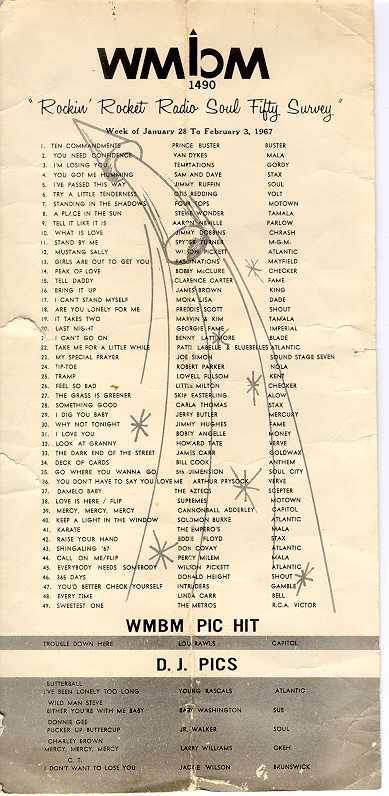 WMBM
1490
"Rockin' Rocket Radio Soul Fifty Survey"
Week of January 28 To February 3, 1967
1. TEN COMMANDMENTS PRINCE BUSTER BUSTER
2. YOU NEED CONFIDENCE VAN DYKES MALA
3. I'M LOSING YOU TEMPTATIONS GORDY
4. YOU GOT ME HUMMING SAM AND DAVE STAX
5. I'VE PASSED THIS WAY JIMMY RUFFIN SOUL
6. TRY A LITTLE TENDERNESS OTIS REDDING VOLT
7. STANDING IN THE SHADOWS FOUR TOPS MOTOWN
8. A PLACE IN THE SUN STEVIE WONDER TAMALA
9. TELL IT LIKE IT IS AARON NEVILLE PARLOW
10. WHAT IS LOVE JIMMY DOBBINS CHRASH
11. STAND BY ME SPYDER TURNER M-G-M.
12. MUSTANG SALLY WILSON PICKETT ATLANTIC
13. GIRLS ARE OUT TO GET YOU FASCINATIONS MAYFIELD
14. PEAK OF LOVE BOBBY McCLURE CHECKER
15. TELL DADDY CLARENCE CARTER FAME
16. BRING IT UP JAMES BROWN KING
17. I CAN'T STAND MYSELF MONA LISA DADE
18. ARE YOU LONELY FOR ME FREDDIE SCOTT SHOUT
19. IT TAKES TWO MARVIN & KIM TAMALA
20. LAST NIGHT GEORGIE FAME IMPERIAL
21. I CAN'T GO ON BENNY LATTIMORE BLADE
22. TAKE ME FOR A LITTLE WHILE PATTI LABELLE & BLUEBELLES ATLANTIC
23. MY SPECIAL PRAYER JOE SIMON SOUND STAGE SEVEN
24. TIP-TOE ROBERT PARKER NOLA
25. TRAMP LOWELL FULSOM KENT
26. FEEL SO BAD LITTLE MILTON CHECKER
27. THE GRASS IS GREENER SKIP EASTERLING ALOW
28. SOMETHING GOOD CARLA THOMAS STAX
29. I DIG YOU BABY JERRY BUTLER MERCURY
30. WHY NOT TONIGHT JIMMY HUGHES FAME
31. I LOVE YOU BOBBY ANGELLE MONEY
32. LOOK AT GRANNY HOWARD TATE VERVE
33. THE DARK END OF THE STREET JAMES CARR GOLDWAX
34. DECK OF CARDS BILL COOK ANTHEM
35. GO WHERE YOU WANNA GO 5th DIMENSION SOUL CITY
36. YOU DON'T HAVE TO SAY YOU LOVE ME ARTHUR PRYSOCK VERVE
37. DAMELO BABY THE AZTECS SCEPTER
38. LOVE IS HERE / FLIP SUPREMES MOTOWN
39. MERCY, MERCY, MERCY CANNONBALL ADDERLEY CAPITOL
40. KEEP A LIGHT IN THE WINDOW SOLOMON BURKE ATLANTIC
41. KARATE THE EMPERO'S MALA
42. RAISE YOUR HAND EDDIE FLOYD STAX
43. SHINGALING '67 DON COVAY ATLANTIC
44. CALL ON ME/FLIP PERCY MILEM MALA
45. EVERYBODY NEEDS SOMEBODY WILSON PICKETT ATLANTIC
46. 365 DAYS DONALD HEIGHT SHOUT
47. YOU'D BETTER CHECK YOURSELF INTRUDERS GAMBLE
48. EVERY TIME LINDA CARR BELL
49. SWEETEST ONE THE METROS R.C.A. VICTOR
WMBM PIC HIT
TROUBLE DOWN HERE LOU RAWLS CAPITOL
D. J. PICS
BUTTERBALL
I'VE BEEN LONELY TOO LONG YOUNG RASCALS ATLANTIC
WILD MAN STEVE
EITHER YOU'RE WITH ME BABY WASHINGTON SUE
DONNIE GEE
PUCKER UP BUTTERCUP JR. WALKER SOUL
CHARLEY BROWN
MERCY, MERCY, MERCY LARRY WILLIAMS OKEH
C. T.
I DON'T WANT TO LOSE YOU JACKIE WILSON BRUNSWICK